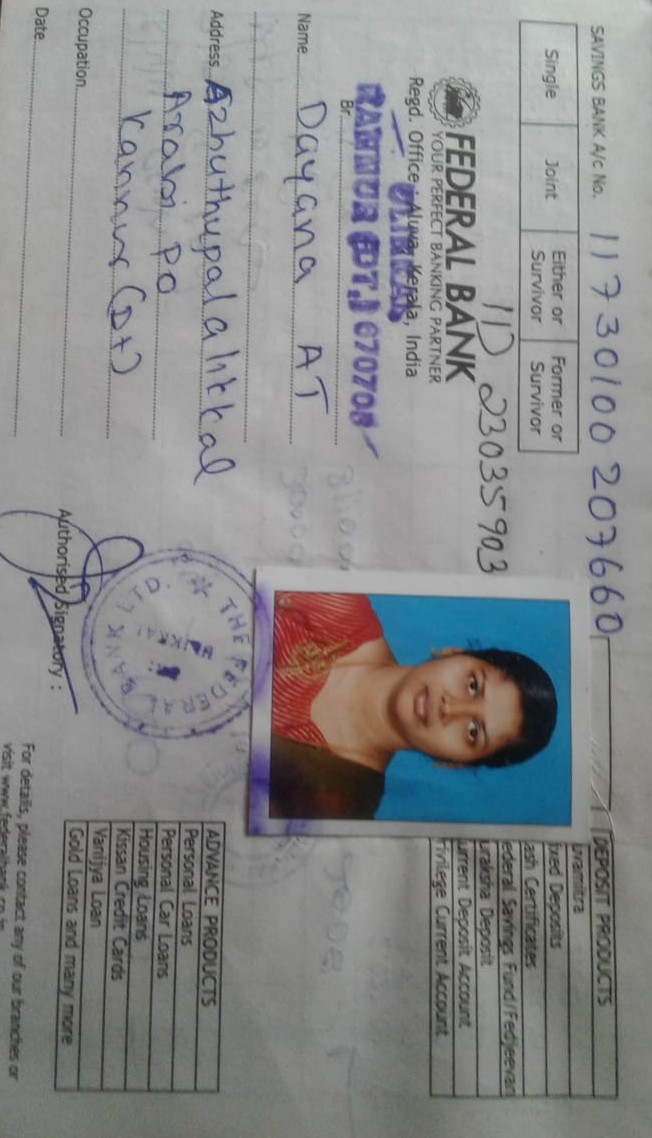 SAVINGS BANK A/c No. 11730100207660
Single Joint Either or Survivor Former or Survivor
ID 23035903
FEDERAL BANK
YOUR PERFECT BANKING PARTNER
Regd. Office : Aluva, Kerala, India
ULIKKAL
Br.
KANNUR (DT.) 670705
Name Dayana AT
Address Azhuthupalalikkal
Arabi PO
Kannur (Dt)
Occupation
Date
THE FEDERAL BANK LTD.
Authorised Signatory :
DEPOSIT PRODUCTS
vamitra
ixed Deposits
ash Certificates
ederal Savings Fund/Fedjeevan
uraksha Deposit
urrent Deposit Account
rivilege Current Account
ADVANCE PRODUCTS
Personal Loans
Personal Car Loans
Housing Loans
Kissan Credit Cards
Vanijya Loan
Gold Loans and many more
For details, please contact any of our branches or
visit www.federalbank.co.in